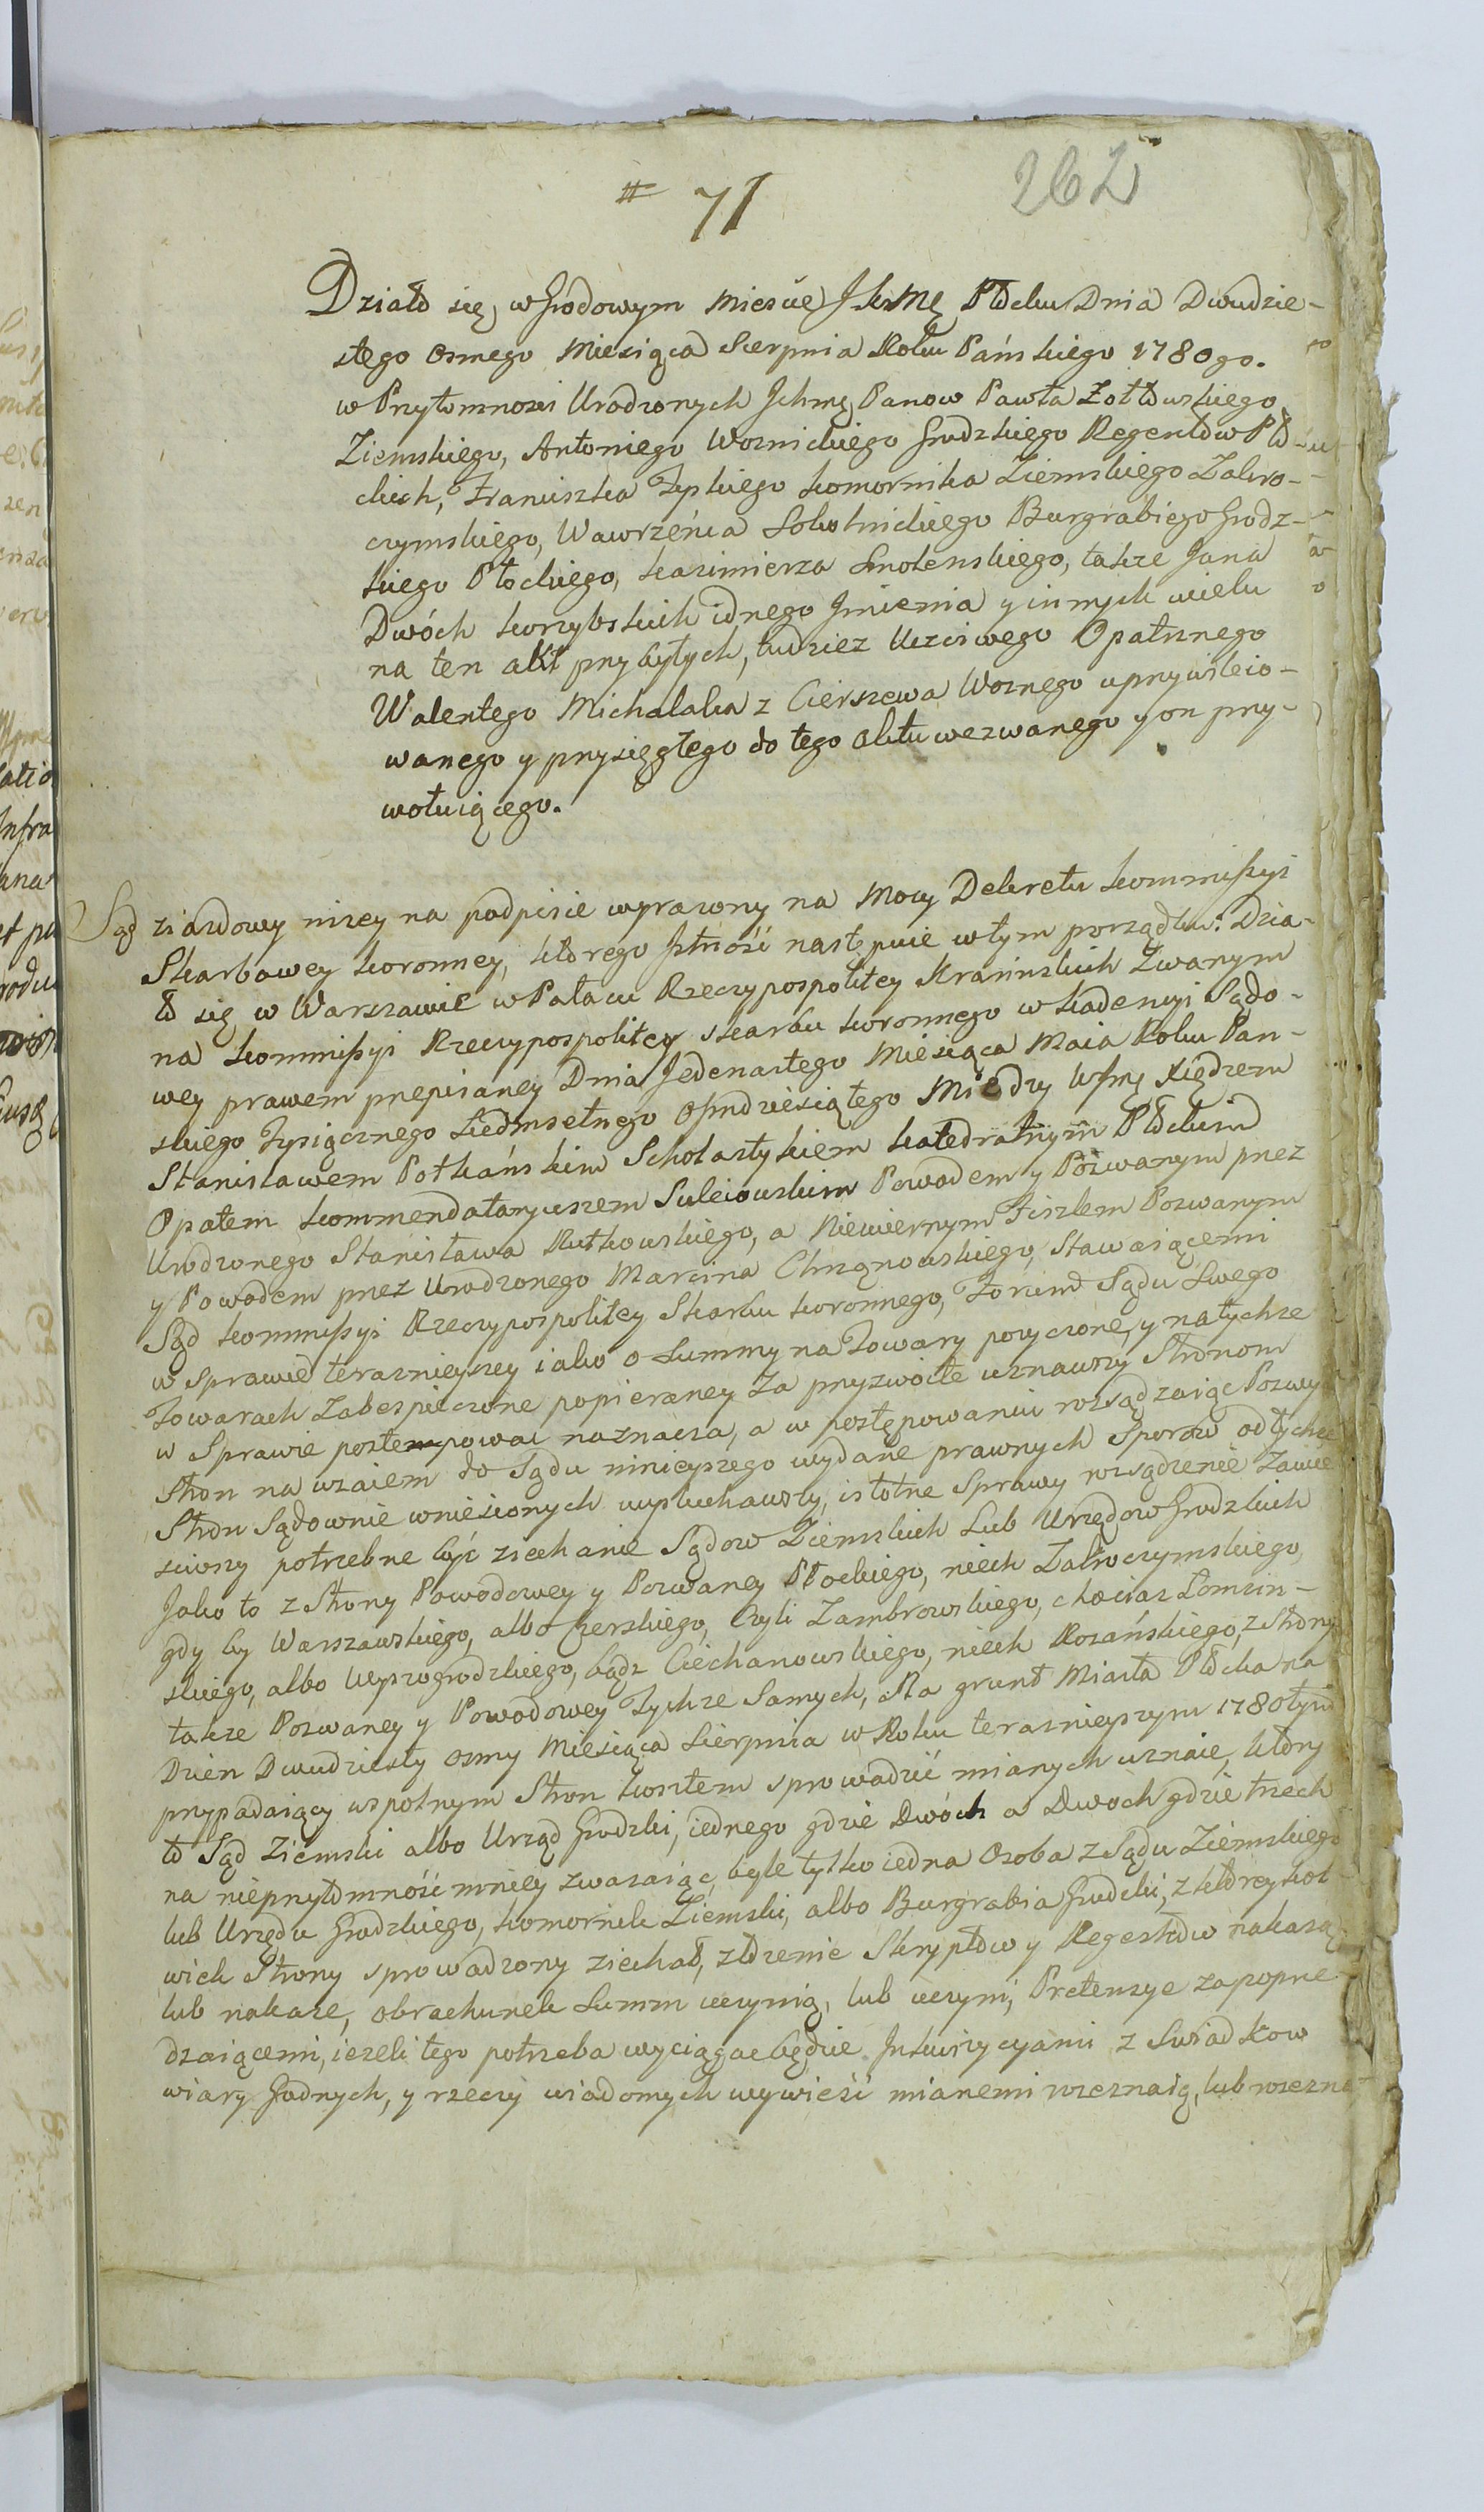 # 71
262
Działo się w Grodowym Mieście JKrMę Płocku Dnia Dwudzie-
stego Osmego Miesiąca Sierpnia Roku Pańskiego 1780go.
w Przytomnosci Urodzonych Jchmę Panow Pawła Zołtowskiego
Ziemskiego, Antoniego Woznickiego Grodzkiego Regentow Pło-
ckich, Franciszka Typkiego Komornika Ziemskiego Zakro-
czymskiego, Wawrzeńca Sokolnickiego Burgrabiego Grodz-
kiego Płockiego, Kazimierza Smolenskiego, takze Jana
Dwóch Korzybskich idnego Jmienia y innych wielu
na ten akt przybyłych, tudziez Uczciwego Opatrznego
Walentego Michalaka z Cierszewa Woznego uprzywileio-
wanego y przysięgłego do tego Aktu wezwanego y on przy-
wołuiącego.
Sąd ziazdowy nizey na podpisie wyrazony na Mocy Dekretu Kommissyi
Skarbowey Koronney, ktorego Jstność następuie w tym porządku: Dzia-
ło się w Warszawie w Pałacu Rzeczypospolitey Krasinskich Zwanym
na Kommissyi Rzeczypospolitey Skarbu Koronnego w Kadencyi Sądo-
wey prawem przepisaney Dnia Jedenastego Miesiąca Maia Roku Pań-
skiego Tysiącznego Siedmsetnego Osmdziesiątego Miedzy WJmę Xiędzem
Stanisławem Potkańskim Scholastykiem Katedralnym Płockim
Opatem Kommendataryuszem Suleiowskim Powodem y Pozwanym przez
Urodzonego Stanisława Rutkowskiego, a Niewiernym Fiszlem Pozwanym
y Powodem przez Urodzonego Marcina Chrząnowskiego, Stawaiącemi
Sąd Kommissyi Rzeczypospolitey Skarbu Koronnego, Forum Sądu Swego
w Sprawie teraznieyszey iako o Summy na Towary pozyczone, y na tychze
Towarach Zabespieczone popieraney Za przyzwoite uznawszy Stronom
w Sprawie postempowac naznacza, a w postępowaniu rozsądzaiąc Pozwy
Stron na wzaiem do Sądu ninieyszego wydane prawnych Sporow od tychze
Stron Sądownie wniesionych wysłuchawszy, istotne Sprawy rozsądzenie Zawie
siwszy potrzebne być ziechanie Sądow Ziemskich Lub Urzędow Grodzkich
Jako to z Strony Powodowey y Pozwaney Płockiego, niech Zakroczymskiego,
gdy by Warszawskiego, albo Czerskiego, Czyli Zambrowskiego, chociaz Łomzin-
skiego, albo Wyszogrodzkiego, bądz Ciechanowskiego, niech Rozańskiego, z Strony
takze Pozwaney y Powodowey Tychze Samych, Na grunt Miasta Płocka na
Dzien Dwudziesty osmy Miesiąca Sierpnia w Roku terazniejszym 1780tym
przypadaiący wspolnym Stron kosztem sprowadzić mianych uznaie, ktory
to Sąd Ziemski albo Urząd Grodzki, iednego gdzie Dwóch a Dwoch gdzie trzech
na nieprzytomność mniey zwazaiąc, byle tylko iedna Osoba z Sądu Ziemskiego
lub Urzędu Grodzkiego, Komornik Ziemski, albo Burgrabia Grodzki, z ktorey kol-
wiek Strony sprowadzony ziechał, złozenie Skryptow y Regestrow nakazą
lub nakaze, obrachunek Summ uczynią, lub uczyni, Pretensye zapoprze
dzaiącemi, iezeli tego potrzeba wyciągac będzie Jnkwizycyami z Swiadkow
wiary Godnych, y rzeczy wiadomych wywieść mianemi rozeznaią, lub rozezna